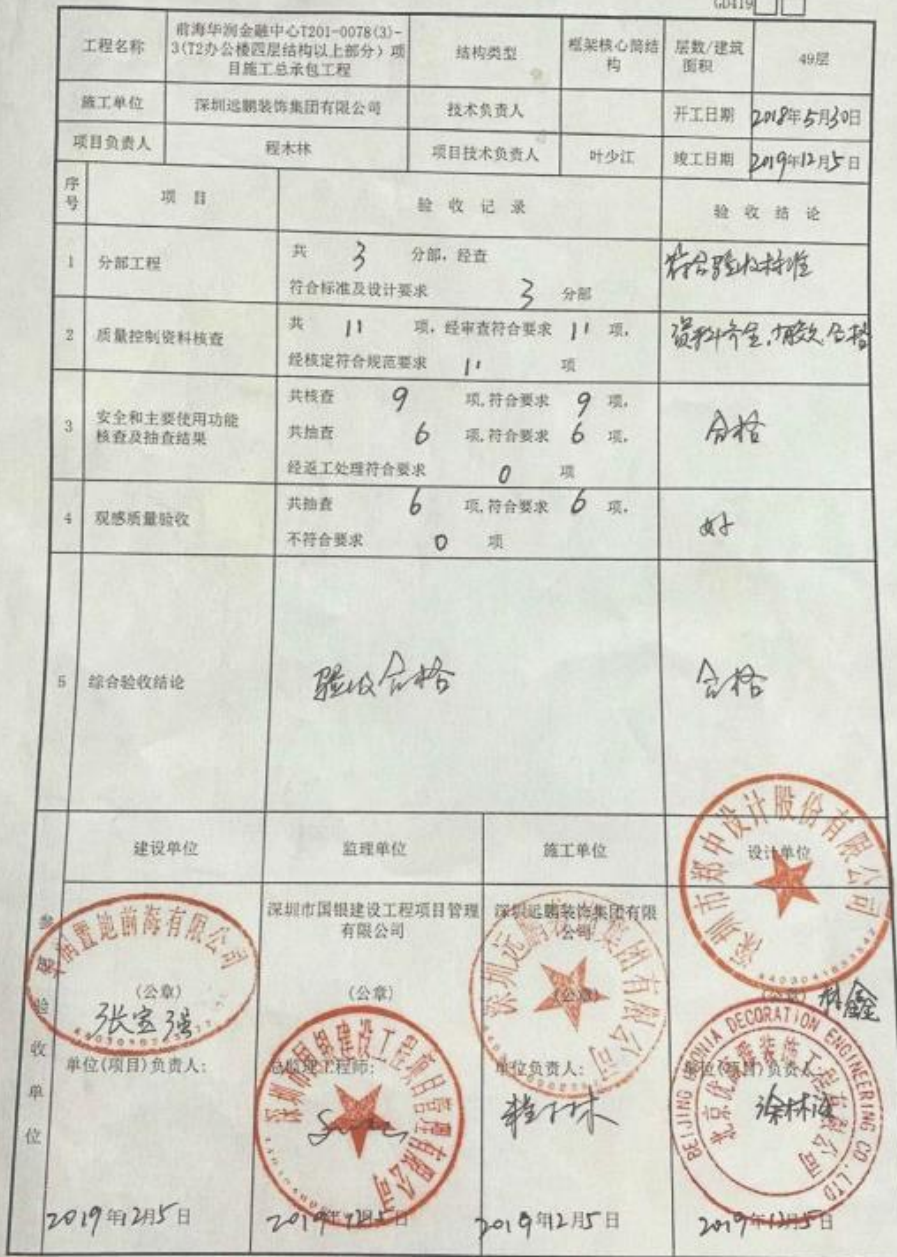 GD419
工程名称
前海华润金融中心T201-0078(3)-
3(T2办公楼四层结构以上部分）项
目施工总承包工程
结构类型
框架核心筒结
构
层数/建筑
面积
49层
施工单位
深圳远鹏装饰集团有限公司
技术负责人
开工日期
2018年5月30日
项目负责人
程木林
项目技术负责人
叶少江
竣工日期
2019年12月5日
序
号
项 目
验 收 记 录
验 收 结 论
1
分部工程
共 3 分部，经查
符合标准及设计要求 3 分部
符合验收标准
2
质量控制资料核查
共 11 项，经审查符合要求 11 项，
经核定符合规范要求 11 项
资料齐全，有效，合格
3
安全和主要使用功能
核查及抽查结果
共核查 9 项，符合要求 9 项，
共抽查 6 项，符合要求 6 项，
经返工处理符合要求 0 项
合格
4
观感质量验收
共抽查 6 项，符合要求 6 项，
不符合要求 0 项
好
5
综合验收结论
验收合格
合格
参
验
收
单
位
建设单位
监理单位
施工单位
设计单位
置地前海有限公司
(公章)
张宝强
单位(项目)负责人：
2019年12月5日
深圳市国银建设工程项目管理
有限公司
(公章)
总监理工程师：
深圳市国银建设工程项目管理有限公司
2019年12月5日
深圳远鹏装饰集团有限
公司
(公章)
深圳远鹏装饰集团有限公司
单位负责人：
程木林
2019年12月5日
深圳市郑中设计股份有限公司
(公章)
林鑫
单位(项目)负责人
BEIJING DECORATION ENGINEERING CO.,LTD
北京优 装饰工程有限公司
涂林
2019年12月5日